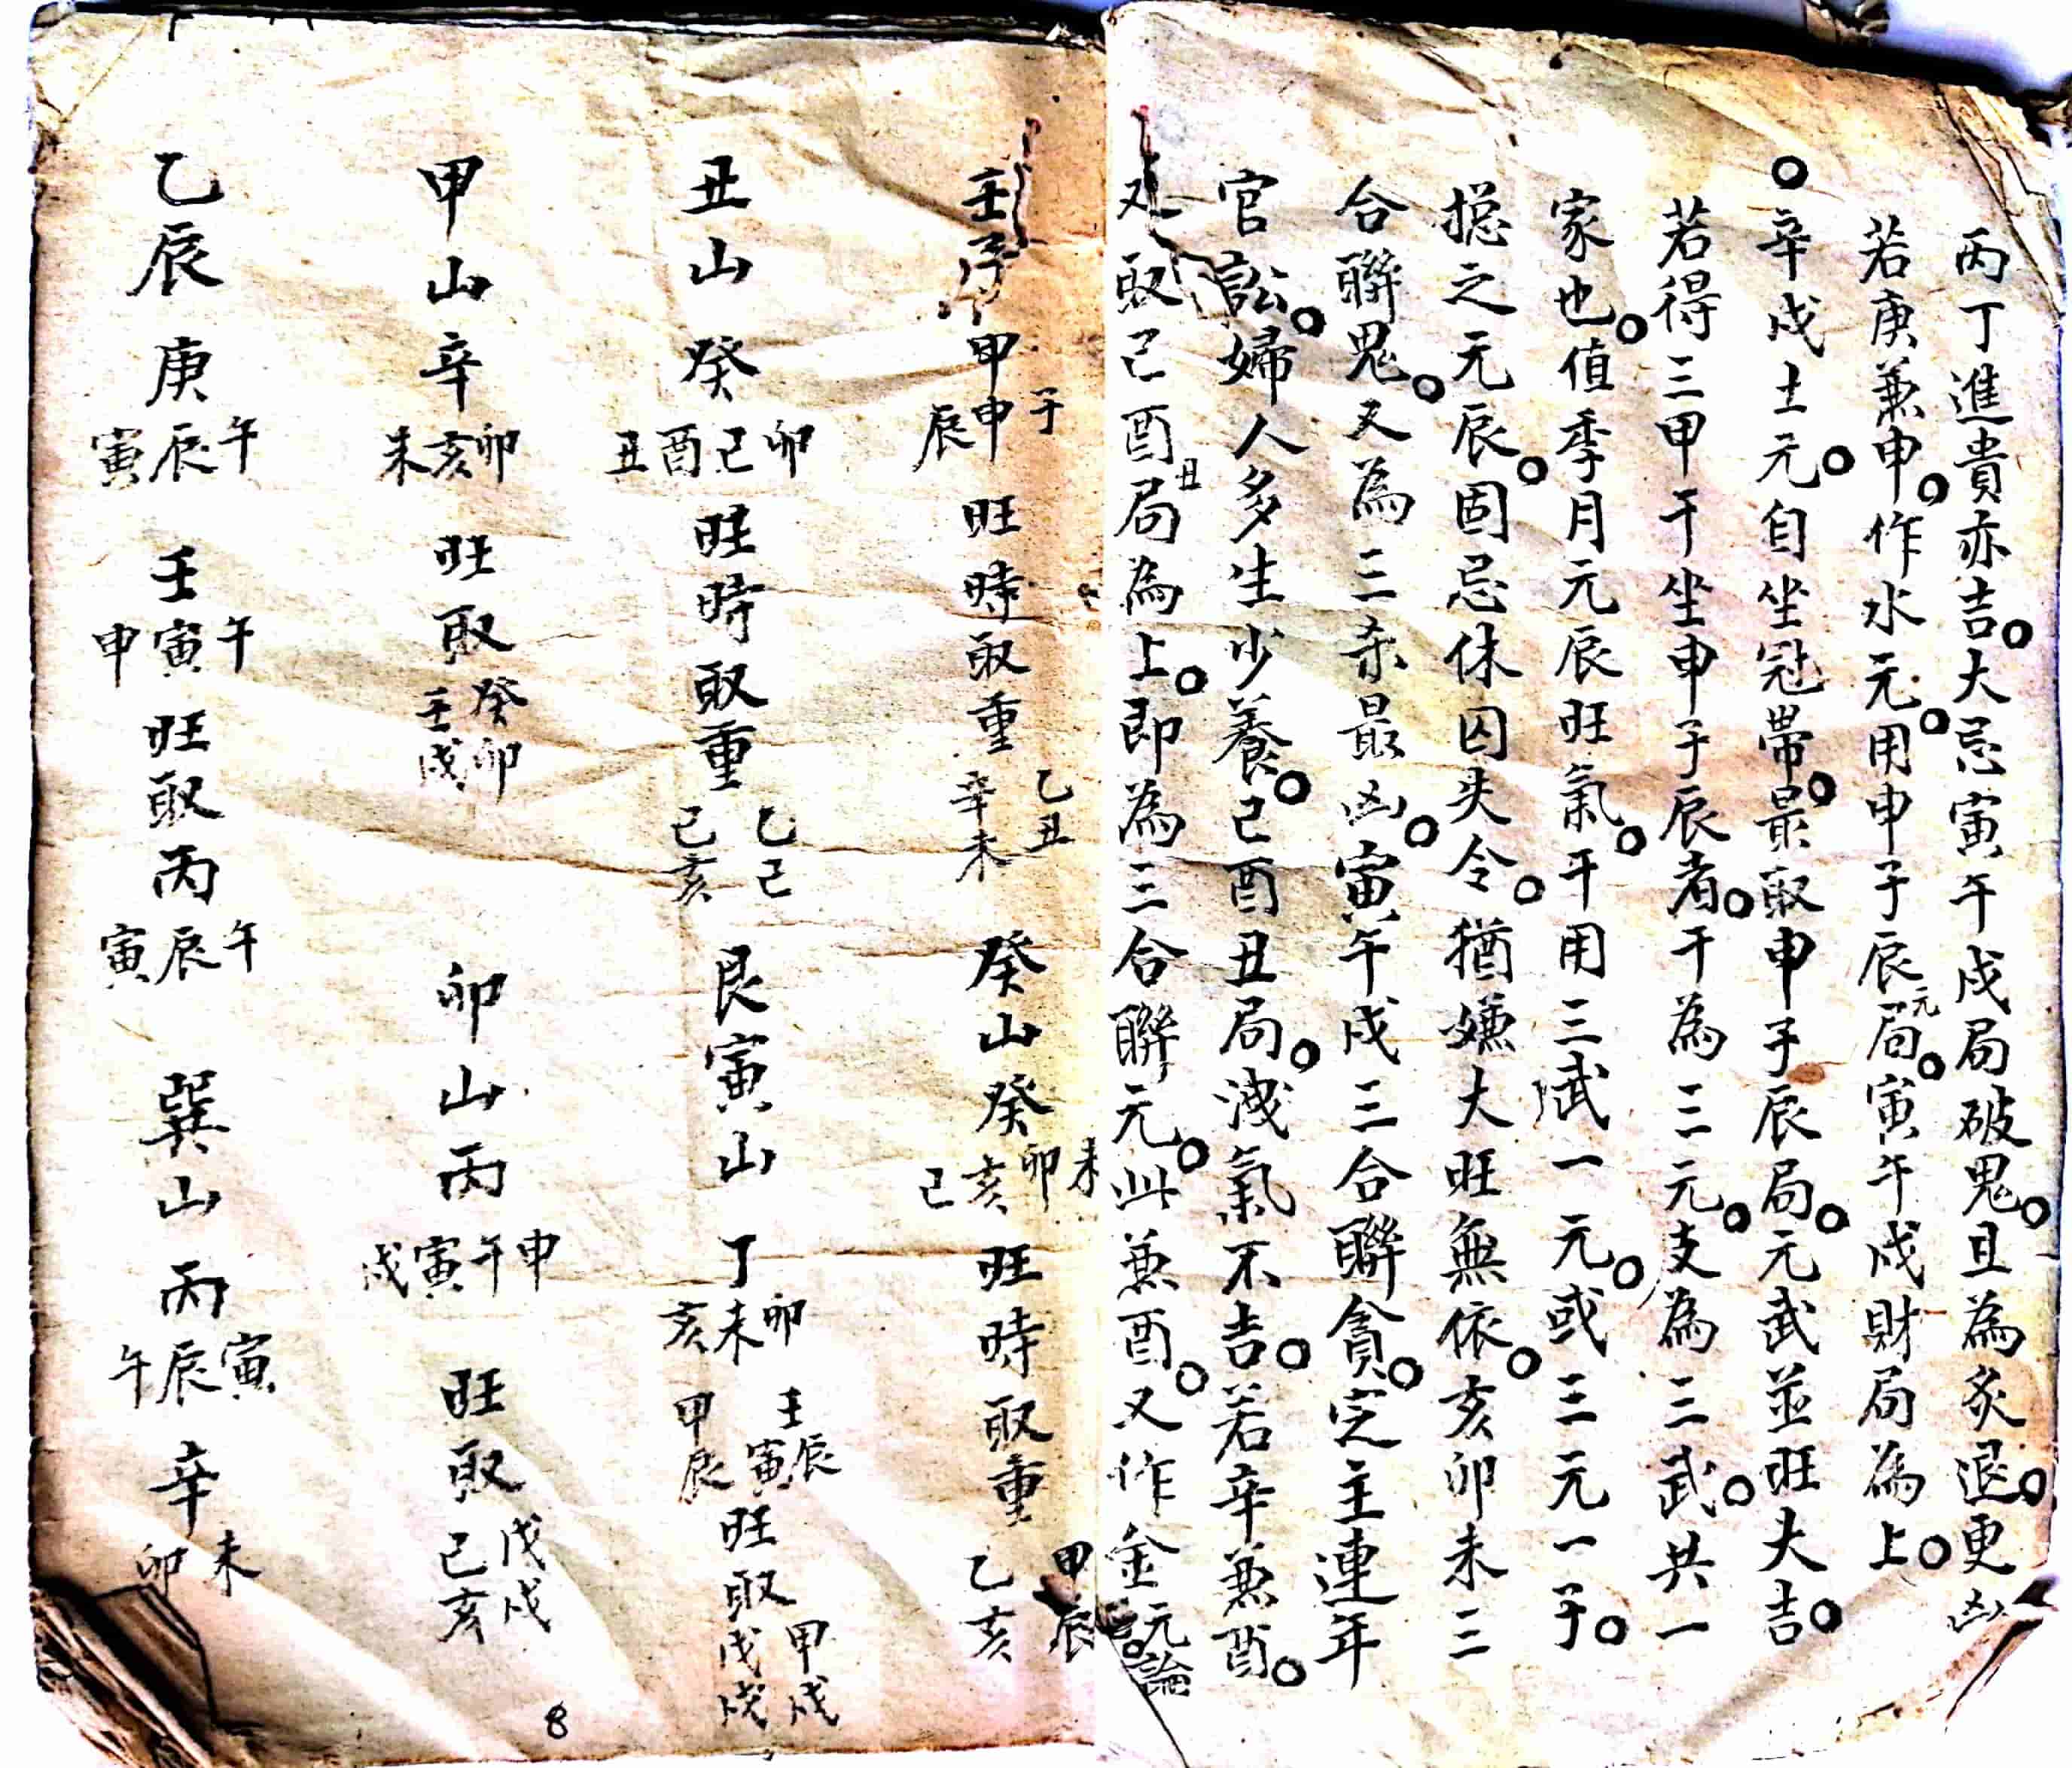 丙丁進貴亦吉。大忌寅午戌局破鬼。且為炙退。更凶
若庚兼申。作水元。用申子辰元局。寅午戌財局為上。
○辛戌土元。自坐冠帶。最取申子辰局。元武並旺大吉。
若得三甲干坐申子辰者。干為三元。支為三武。共一
家也。值季月元辰旺氣。干用三武一元。或三元一子。
摠之元辰。固忌休囚失令。猶嫌大旺無依。亥卯未三
合聯鬼。又為三杀最凶。寅午戌三合聯貪。定主連年
官訟。婦人多生少養。己酉丑局。洩氣不吉。若辛兼酉。
又取己酉丑局為上。即為三合聯元。此兼酉。又作金元論
壬子甲子申辰旺時取重乙丑辛未 癸山癸未卯亥己旺時取重甲辰乙亥
丑山癸卯己酉丑旺時取重乙己己亥 艮寅山丁卯未亥壬辰寅甲辰旺取甲戌戊戌
甲山辛卯亥未旺取癸卯壬戌 卯山丙申午寅戌旺取戊戌己亥
乙辰庚午辰寅壬午寅申旺取丙午辰寅 巽山丙寅辰午辛未卯
8